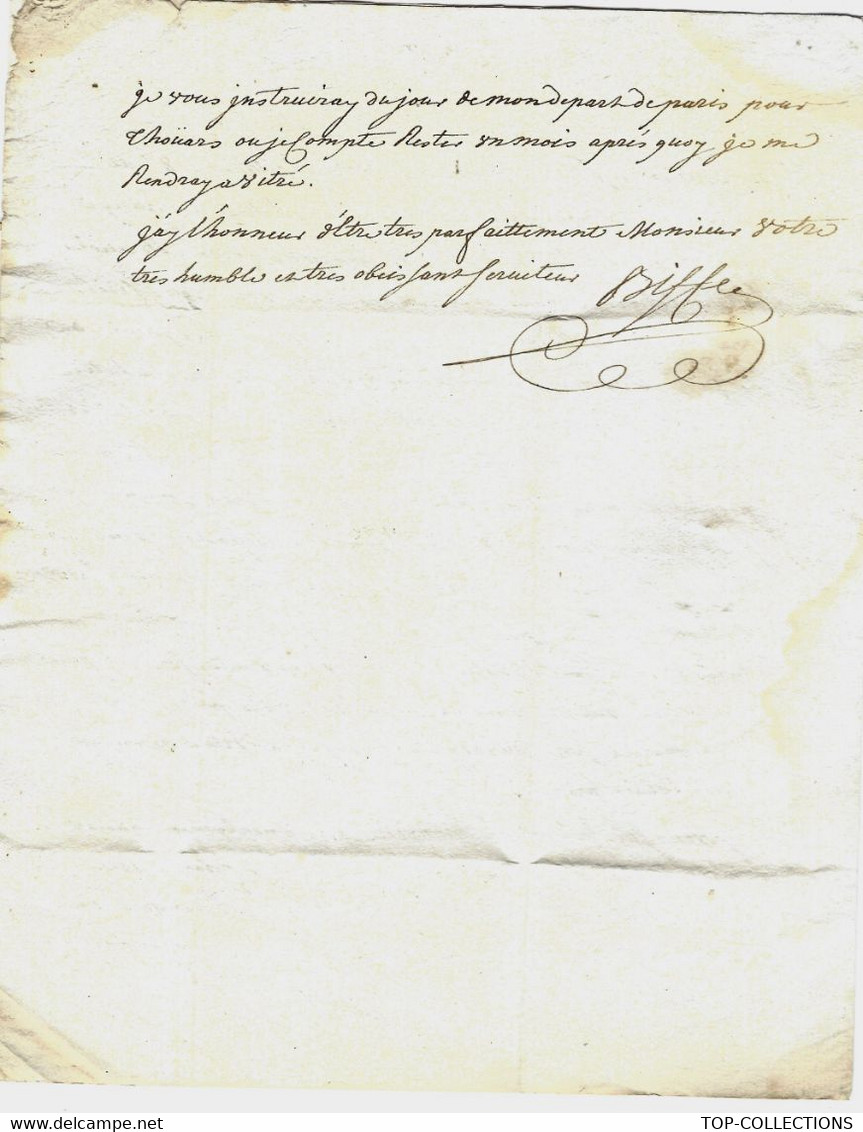 je vous jnstruiray du jour de mon depart de paris pour
thoüars ou je Compte Rester un mois aprés quoy je me
Rendray a vitré.
j'ay l'honneur d'Etre tres parfaittement Monsieur votre
tres humble et tres obeissant serviteur
TOP-COLLECTIONS